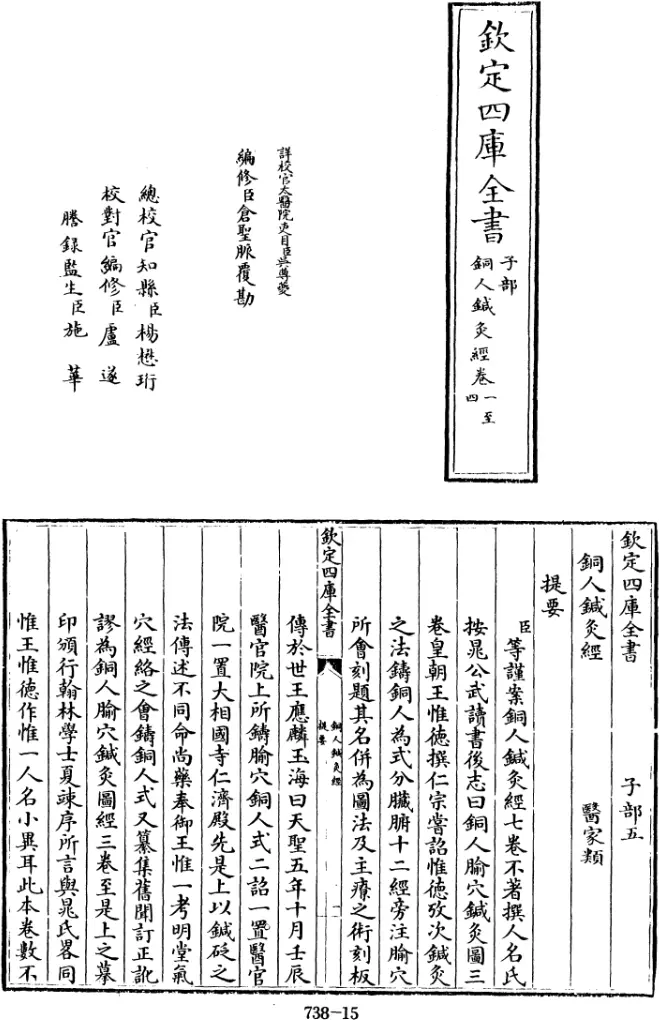 欽定四庫全書
子部
銅人鍼灸經卷一至四
詳校官太醫院吏目臣吳尊夔
編修臣倉聖脈覆勘
總校官知縣臣楊懋珩
校對官編修臣盧遂
謄錄監生臣施華
欽定四庫全書 子部五
銅人鍼灸經 醫家類
提要
臣等謹案銅人鍼灸經七卷不著撰人名氏
按晁公武讀書後志曰銅人腧穴鍼灸圖三
卷皇朝王惟德撰仁宗嘗詔惟德攷次鍼灸
之法鑄銅人為式分臟腑十二經旁注腧穴
所會刻題其名併為圖法及主療之術刻板
欽定四庫全書
銅人鍼灸經
提要
一
傳於世王應麟玉海曰天聖五年十月壬辰
醫官院上所鑄腧穴銅人式二詔一置醫官
院一置大相國寺仁濟殿先是上以鍼砭之
法傳述不同命尚藥奉御王惟一考明堂氣
穴經絡之會鑄銅人式又纂集舊聞訂正訛
謬為銅人腧穴鍼灸圖經三卷至是上之摹
印頒行翰林學士夏竦序所言與晁氏畧同
惟王惟德作惟一人名小異耳此本卷數不
738-15